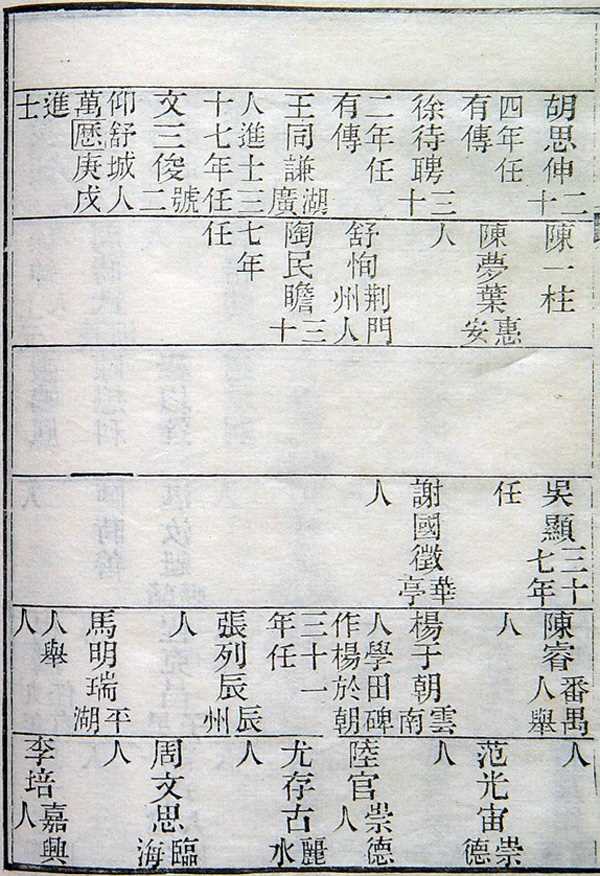 胡思伸二十
四年任
有傳
徐待聘三十
二年任
有傳
王同謙湖廣
人進士三
十七年任
文三俊號二
仰舒城人
萬曆庚戌
進
士
陳一柱
陳夢葉惠安
人
舒恂荆門州人
陶民瞻三十
七年
任
吳顯三十七年
任
謝國徵華亭
人
陳睿番禺人舉
人
楊于朝雲南
人學田碑
作楊於朝
三十一
年任
張列辰辰州
人
馬明瑞平湖
人舉
人
人
范光宙崇德
人
陸官崇德人
尤存古麗水
人
周文思臨海
人
李培嘉興人